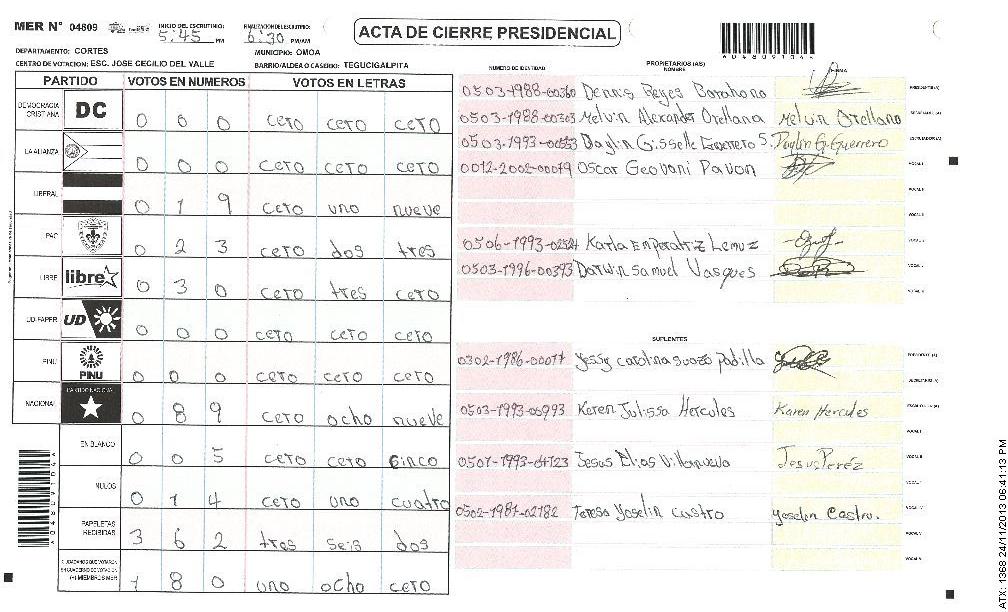 MER N° 04809 INICIO DEL ESCRUTINIO: 5:45 PM FINALIZACION ESCRUTINIO: 6:30 PM/AM ACTA DE CIERRE PRESIDENCIAL
DEPARTAMENTO: CORTES MUNICIPIO: OMOA
CENTRO DE VOTACION: ESC. JOSE CECILIO DEL VALLE BARRIO/ALDEA O CASERIO: TEGUCIGALPITA
PARTIDO VOTOS EN NUMEROS VOTOS EN LETRAS
DEMOCRACIA CRISTIANA DC 0 0 0 cero cero cero
LA ALIANZA 0 0 0 cero cero cero
LIBERAL 0 1 9 cero uno nueve
PAC 0 2 3 cero dos tres
LIBRE libre 0 3 0 cero tres cero
UD-FAPER UD 0 0 0 cero cero cero
PINU PINU 0 0 0 cero cero cero
NACIONAL PARTIDO NACIONAL 0 8 9 cero ocho nueve
EN BLANCO 0 0 5 cero cero cinco
NULOS 0 1 4 cero uno cuatro
PAPELETAS RECIBIDAS 3 6 2 tres seis dos
(+) MIEMBROS MER 1 8 0 uno ocho cero
NUMERO DE IDENTIDAD PROPIETARIOS (AS) NOMBRE FIRMA
0503-1988-00360 Dennis Reyes Barahona PRESIDENTE (A)
0503-1988-00303 Melvin Alexander Orellana Melvin Orellana SECRETARIO (A)
0503-1993-00553 Daylin Gisselle Guerrero S. Daylin G. Guerrero ESCRUTADOR (A)
0012-2002-00079 Oscar Geovani Pavon VOCAL I
0506-1993-02524 Karla Emperatriz Lemuz
0503-1996-00393 Darwin Samuel Vasques
SUPLENTES
0302-1986-00077 Yessy Carolina Suazo Padilla PRESIDENTE (A)
SECRETARIO (A)
0503-1993-00993 Keren Julissa Hercules Karen Hercules
0501-1993-04723 Jesus Elias Villanueva Jesus Peréz
0502-1981-02182 Teresa Yoselin Castro Yoselin Castro.
ATX: 1368 24/11/2013 06:41:13 PM